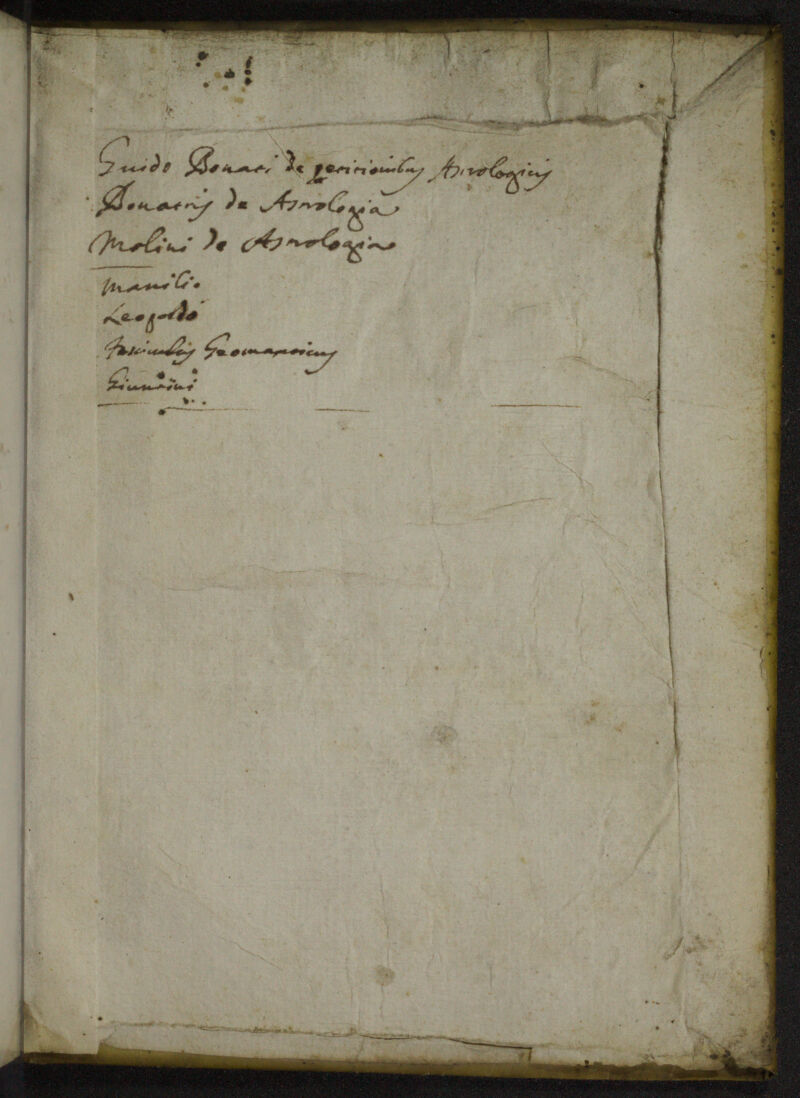 Guido Bonati de petitionibus Astrologicis
Bonatij de Astrologia
Molini de Astrologia
Manilio
Leopoldo
Geomanticus
Giuntini